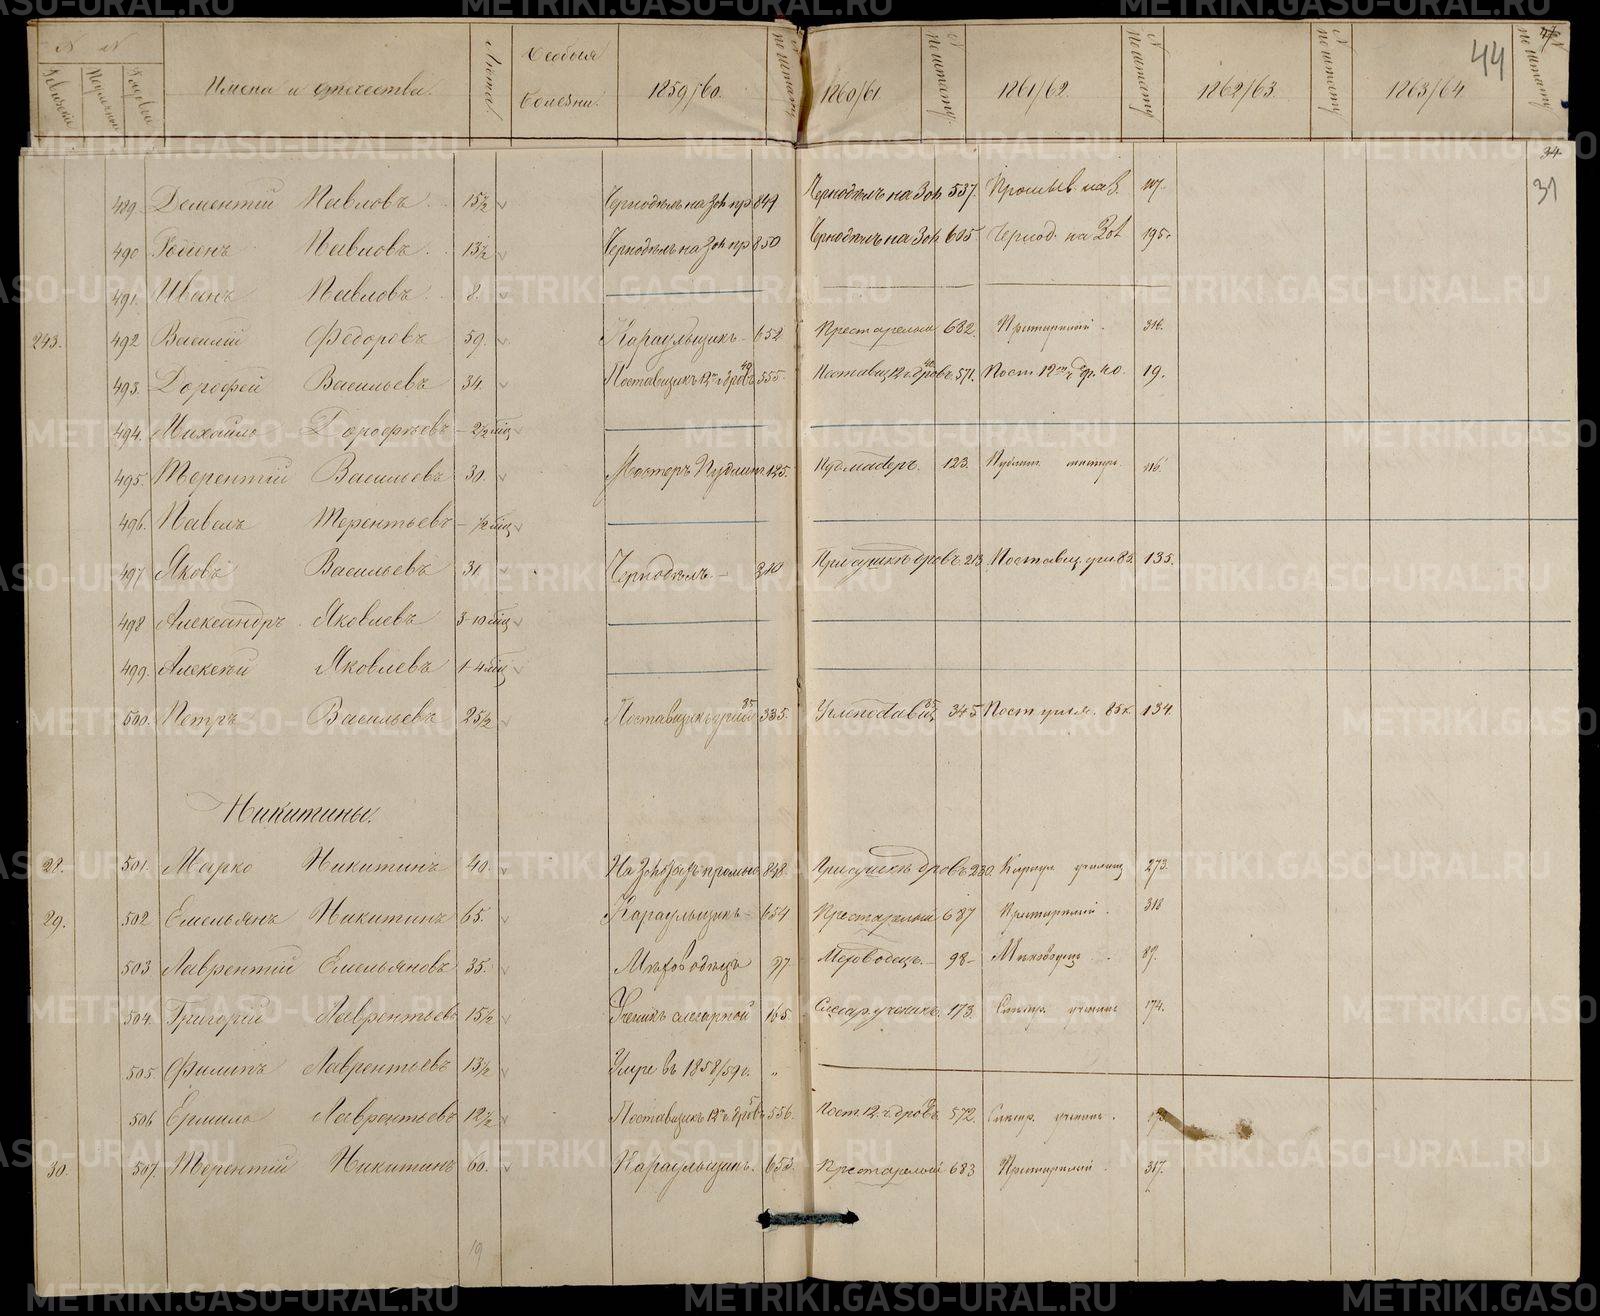 N N Имена и отчества. Лѣта Особыя болѣзни. 1859/60. N по штату 1860/61 N по штату. 1861/62 N по штату 1862/63. N по штату 1863/64 N по штату 44
34
31
489. Дементій Павловъ. 15½ Чернодѣлъ на Зол. пр 849 Чернодѣлъ на Зол. 537. Промыв. на з. 117.
490 Павловъ. 13½ Чернодѣлъ на Зол. пр 850 Чернодѣлъ на Зол. 605 Чернод. на Зол 195.
491. Иванъ Павловъ. 8.
243. 492 Василій Федоровъ 59. Караульщикъ 652 Престарелый 682 Пристарелый. 316.
493. Дорофей Васильевъ 34. Поставщикъ 12 ч. дровъ 40 555. Поставщ. 12 ч. дровъ 40 571. Пост. 12 ч. др. 40. 19.
494. Михайло Дорофѣевъ 2½ мѣц
495. Терентій Васильевъ 30. Мастеръ Пудлинг. 125. Пудмастеръ. 123. Пудлинг. мастеръ. 116.
496. Павелъ Терентьевъ ½ мѣц
497 Яковъ Васильевъ 31 Чернодѣлъ 310 Присушикъ дровъ. 213. Поставщ. угля 85. 135.
498 Александръ Яковлевъ 3-10 мѣц
499. Алексѣй Яковлевъ 1-4 мѣц
500. Петръ Васильевъ 25½ Поставщикъ угля 85 335. Углепоставщ. 85 345 Пост угля. 85 к. 134.
Никитины.
28. 501. Марко Никитинъ 40. 848. Присушикъ дровъ 230. Караул. училищ 273.
29. 502 Емельянъ Никитинъ 65. Караульщикъ 654 Престарелый 687 Пристарелый. 318
503 Лаврентій Емельяновъ 35. Мѣховодецъ 97 Меховодецъ. 98 Мѣховодецъ. 89.
504. Григорій Лаврентьевъ 15½ Ученикъ слесарной 165. Слесар. ученикъ. 173. Слесар. ученикъ 174.
505. Филипъ Лаврентьевъ 13½ Умре въ 1858/59 г. „
506 Ермило Лаврентьевъ 12½ Поставщикъ 12 ч. дровъ 5 556. Пост. 12. ч. дровъ 572. Слесар. ученикъ.
30. 507. Терентій Никитинъ 60. Караульщикъ. 653. Престарелый 683 Пристарелый. 317.
19
METRIKI.GASO-URAL.RU